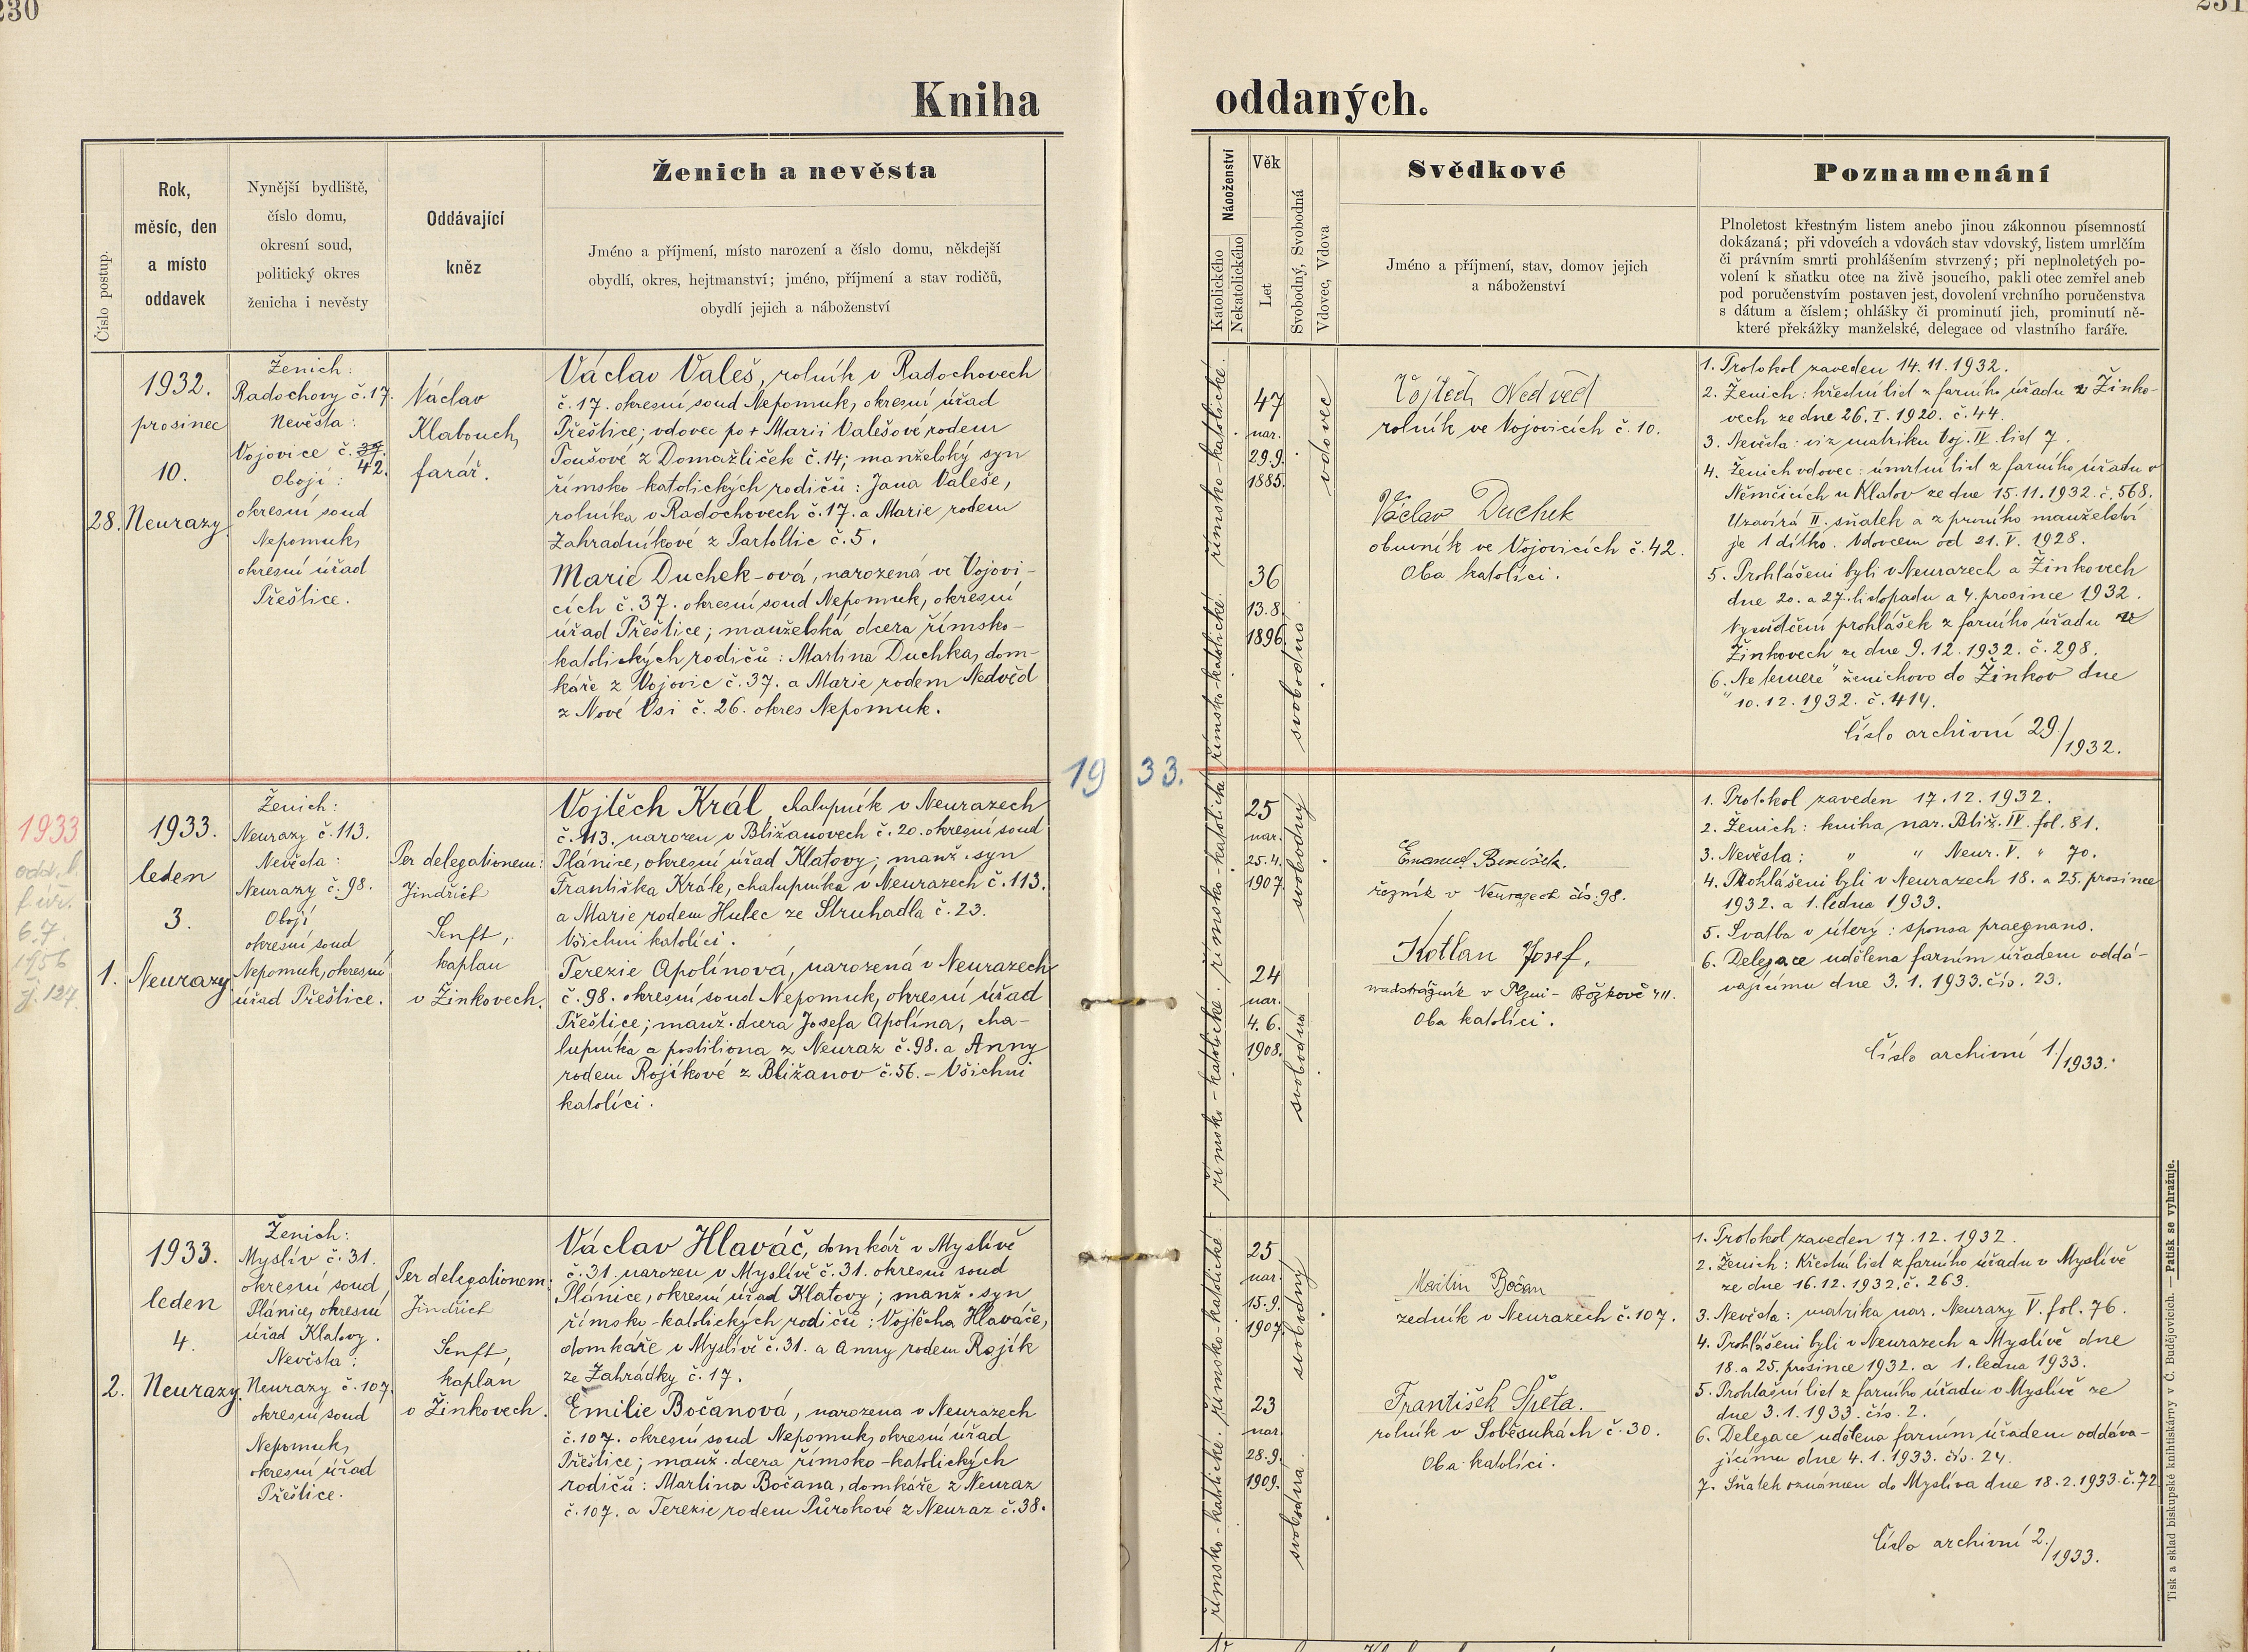 230
231
Kniha
oddaných.
Číslo postup.
Rok,
měsíc, den
a místo
oddavek
Nynější bydliště,
číslo domu,
okresní soud,
politický okres
ženicha i nevěsty
Oddávající
kněz
Ženich a nevěsta
Jméno a příjmení, místo narození a číslo domu, někdejší
obydlí, okres, hejtmanství; jméno, příjmení a stav rodičů,
obydlí jejich a náboženství
Náboženství
Katolického
Nekatolického
Věk
Let
Svobodný, Svobodná
Vdovec, Vdova
Svědkové
Jméno a příjmení, stav, domov jejich
a náboženství
Poznamenání
Plnoletost křestným listem anebo jinou zákonnou písemností
dokázaná; při vdovcích a vdovách stav vdovský, listem umrlčím
či právním smrti prohlášením stvrzený; při neplnoletých po-
volení k sňatku otce na živě jsoucího, pakli otec zemřel aneb
pod poručenstvím postaven jest, dovolení vrchního poručenstva
s dátum a číslem; ohlášky či prominutí jich, prominutí ně-
které překážky manželské, delegace od vlastního faráře.
28.
1932.
prosinec
10.
Neurazy.
Ženich:
Radochovy č. 17.
Nevěsta:
Vojovice č. 37.
42.
Obojí:
okresní soud
Nepomuk,
okresní úřad
Přeštice.
Václav
Klabouch,
farář.
Václav Valeš, rolník v Radochovech
č. 17. okresní soud Nepomuk, okresní úřad
Přeštice; vdovec po + Marii Valešové rodem
Toušové z Domažliček č. 14; manželský syn
římsko katolických rodičů: Jana Valeše,
rolníka v Radochovech č. 17. a Marie rodem
Zahradníkové z Partoltic č. 5.
Marie Duchek-ová, narozená ve Vojovi-
cích č. 37. okresní soud Nepomuk, okresní
úřad Přeštice; manželská dcera římsko-
katolických rodičů: Martina Duchka, dom-
káře z Vojovic č. 37. a Marie rodem Nedvěd
z Nové Vsi č. 26. okres Nepomuk.
římsko-katolické.
římsko-katolické.
47
nar.
29.9.
1885.
vdovec
36
13.8.
1896.
svobodná.
Vojtěch Nedvěd
rolník ve Vojovicích č. 10.
Václav Duchek
obuvník ve Vojovicích č. 42.
Oba katolíci.
1. Protokol zaveden 14.11.1932.
2. Ženich: křestní list z farního úřadu v Žinko-
vech ze dne 26. I. 1920. č. 44.
3. Nevěsta: viz matriku Voj. IV. list 7.
4. Ženich vdovec: úmrtní list z farního úřadu v
Němčicích u Klatov ze dne 15.11.1932. č. 568.
Uzavírá II. sňatek a z prvního manželství
je 1 dítko. Vdovcem od 21. V. 1928.
5. Prohlášeni byli v Neurazech a Žinkovech
dne 20. a 27. listopadu a 4. prosince 1932.
Vysvědčení prohlášek z farního úřadu ve
Žinkovech ze dne 9.12.1932. č. 298.
6. „Ne temere" ženichovo do Žinkov dne
10.12.1932. č. 414.
Číslo archivní 29./1932.
1933.
1933
odd. l.
f. úř.
6.7.
1956
čj. 124
1.
1933.
leden
3.
Neurazy.
Ženich:
Neurazy č. 113.
Nevěsta:
Neurazy č. 98.
Obojí
okresní soud
Nepomuk, okresní
úřad Přeštice.
Per delegationem:
Jindřich
Senft,
kaplan
v Žinkovech.
Vojtěch Král, chalupník v Neurazech
č. 113. narozen v Bližanovech č. 20. okresní soud
Plánice, okresní úřad Klatovy; manž. syn
Františka Krále, chalupníka v Neurazech č. 113.
a Marie rodem Hulec ze Struhadla č. 23.
Všichni katolíci.
Terezie Apolínová, narozená v Neurazech
č. 98. okresní soud Nepomuk, okresní úřad
Přeštice; manž. dcera Josefa Apolína, cha-
lupníka a postiliona z Neuraz č. 98. a Anny
rodem Rojíkové z Bližanov č. 56. - Všichni
katolíci.
římsko-katolické.
římsko-katolické
25
nar.
25.4.
1907.
svobodný
24
nar.
4.6.
1908.
svobodná
řezník v Neurazech čís. 98.
Kotlan Josef,
nadstrážník v Plzni - Božkově 411.
Oba katolíci.
1. Protokol zaveden 17.12.1932.
2. Ženich: kniha nar. Bliž. IV. fol. 81.
3. Nevěsta: " " Neur. V. " 70.
4. Prohlášeni byli v Neurazech 18. a 25. prosince
1932. a 1. ledna 1933.
5. Svatba v úterý: sponsa praegnans.
6. Delegace udělena farním úřadem oddá-
vajícímu dne 3.1.1933. čís. 23.
Číslo archivní 1./1933.
2.
1933.
leden
4.
Neurazy.
Ženich:
Myslív č. 31.
okresní soud
Plánice, okresní
úřad Klatovy.
Nevěsta:
Neurazy č. 107.
okresní soud
Nepomuk,
okresní úřad
Přeštice.
Per delegationem:
Jindřich
Senft,
kaplan
v Žinkovech.
Václav Hlaváč, domkář v Myslívě
č. 31. narozen v Myslívě č. 31. okresní soud
Plánice, okresní úřad Klatovy; manž. syn
římsko-katolických rodičů: Vojtěcha Hlaváče,
domkáře v Myslívě č. 31. a Anny rodem Rojík
ze Zahrádky č. 17.
Emilie Bočanová, narozena v Neurazech
č. 107. okresní soud Nepomuk, okresní úřad
Přeštice; manž. dcera římsko-katolických
rodičů: Martina Bočana, domkáře z Neuraz
č. 107. a Terezie rodem Půrokové z Neuraz č. 38.
římsko-katolické.
římsko-katolické.
25
nar.
15.9.
1907.
svobodný
23
nar.
28.9.
1909.
svobodná.
Martin Bočan
zedník v Neurazech č. 107.
František Špeta.
rolník v Soběsukách č. 30.
Oba katolíci.
1. Protokol zaveden 17.12.1932.
2. Ženich: Křestní list z farního úřadu v Myslívě
ze dne 16.12.1932. č. 263.
3. Nevěsta: matrika nar. Neurazy V. fol. 76.
4. Prohlášeni byli v Neurazech a Myslívě dne
18. a 25. prosince 1932. a 1. ledna 1933.
5. Prohlašní list z farního úřadu v Myslívě ze
dne 3.1.1933. čís. 2.
6. Delegace udělena farním úřadem oddáva-
jícímu dne 4.1.1933. čís. 24.
7. Sňatek oznámen do Myslíva dne 18.2.1933. č. 72
Číslo archivní 2./1933.
Tisk a sklad biskupské knihtiskárny v Č. Budějovicích. — Patisk se vyhražuje.